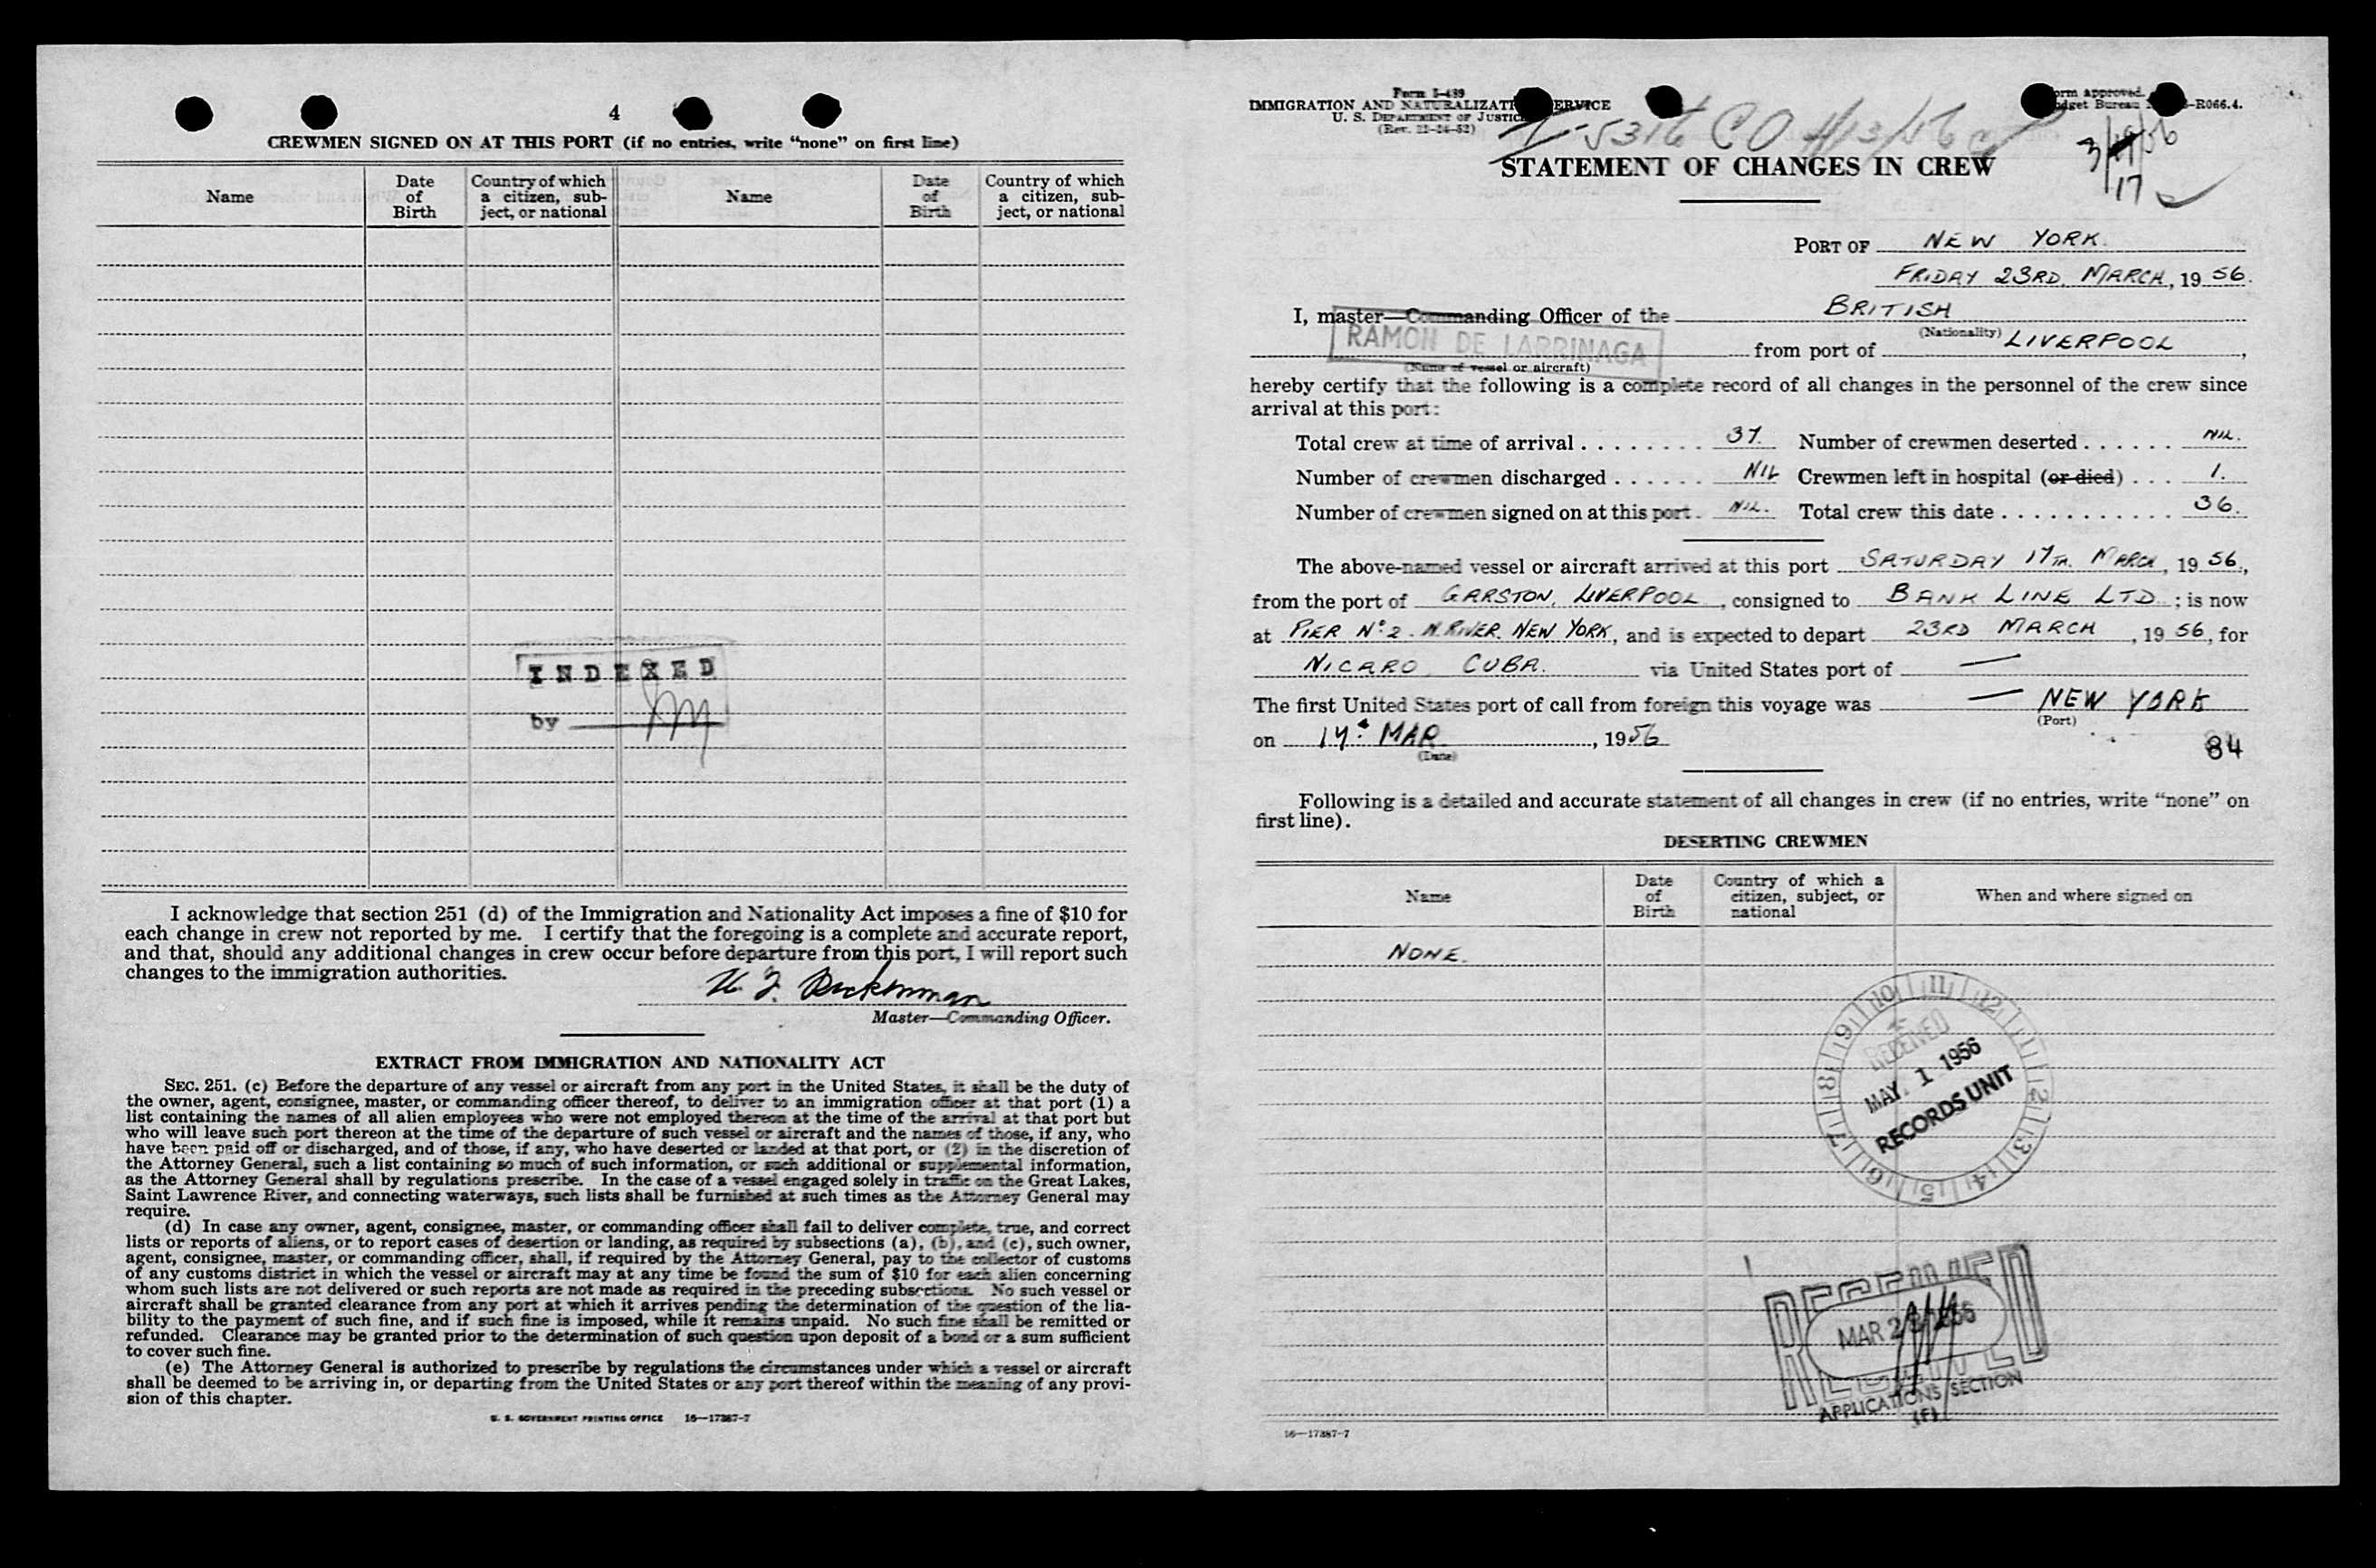 4
CREWMEN SIGNED ON AT THIS PORT (if no entries, write “none” on first line)
Name
Date of Birth
Country of which a citizen, subject, or national
Name
Date of Birth
Country of which a citizen, subject, or national
INDEXED
by
I acknowledge that section 251 (d) of the Immigration and Nationality Act imposes a fine of $10 for
each change in crew not reported by me. I certify that the foregoing is a complete and accurate report,
and that, should any additional changes in crew occur before departure from this port, I will report such
changes to the immigration authorities.
Master—Commanding Officer.
EXTRACT FROM IMMIGRATION AND NATIONALITY ACT
SEC. 251. (c) Before the departure of any vessel or aircraft from any port in the United States, it shall be the duty of
the owner, agent, consignee, master, or commanding officer thereof, to deliver to an immigration officer at that port (1) a
list containing the names of all alien employees who were not employed thereon at the time of the arrival at that port but
who will leave such port thereon at the time of the departure of such vessel or aircraft and the names of those, if any, who
have been paid off or discharged, and of those, if any, who have deserted or landed at that port, or (2) in the discretion of
the Attorney General, such a list containing so much of such information, or such additional or supplemental information,
as the Attorney General shall by regulations prescribe. In the case of a vessel engaged solely in traffic on the Great Lakes,
Saint Lawrence River, and connecting waterways, such lists shall be furnished at such times as the Attorney General may
require.
(d) In case any owner, agent, consignee, master, or commanding officer shall fail to deliver complete, true, and correct
lists or reports of aliens, or to report cases of desertion or landing, as required by subsections (a), (b), and (c), such owner,
agent, consignee, master, or commanding officer, shall, if required by the Attorney General, pay to the collector of customs
of any customs district in which the vessel or aircraft may at any time be found the sum of $10 for each alien concerning
whom such lists are not delivered or such reports are not made as required in the preceding subsections. No such vessel or
aircraft shall be granted clearance from any port at which it arrives pending the determination of the question of the lia-
bility to the payment of such fine, and if such fine is imposed, while it remains unpaid. No such fine shall be remitted or
refunded. Clearance may be granted prior to the determination of such question upon deposit of a bond or a sum sufficient
to cover such fine.
(e) The Attorney General is authorized to prescribe by regulations the circumstances under which a vessel or aircraft
shall be deemed to be arriving in, or departing from the United States or any port thereof within the meaning of any provi-
sion of this chapter.
U. S. GOVERNMENT PRINTING OFFICE 16—17387-7
Form I-489
IMMIGRATION AND NATURALIZATION SERVICE
U. S. DEPARTMENT OF JUSTICE
(Rev. 12-24-52)
Form approved.
Budget Bureau -R066.4.
5316 CO 4/13/56
3/19/56
17
STATEMENT OF CHANGES IN CREW
PORT OF NEW YORK.
FRIDAY 23RD. MARCH, 1956.
I, master—Commanding Officer of the BRITISH
(Nationality)
RAMON DE LARRINAGA from port of LIVERPOOL,
(Name of vessel or aircraft)
hereby certify that the following is a complete record of all changes in the personnel of the crew since
arrival at this port:
Total crew at time of arrival 37. Number of crewmen deserted NIL.
Number of crewmen discharged NIL Crewmen left in hospital (or died) 1.
Number of crewmen signed on at this port NIL. Total crew this date 36.
The above-named vessel or aircraft arrived at this port SATURDAY 17TH. MARCH, 1956.,
from the port of GARSTON, LIVERPOOL, consigned to BANK LINE LTD; is now
at PIER No 2. N. RIVER. NEW YORK, and is expected to depart 23RD MARCH, 1956, for
NICARO, CUBA. via United States port of —
The first United States port of call from foreign this voyage was — NEW YORK
(Port)
on 17. MAR, 1956
(Date)
84
Following is a detailed and accurate statement of all changes in crew (if no entries, write “none” on
first line).
DESERTING CREWMEN
Name
Date of Birth
Country of which a citizen, subject, or national
When and where signed on
NONE.
10 11 12 1 2 3 4 5 6 7 8 9
RECEIVED
MAY 1 1956
RECORDS UNIT
RECEIVED
APPLICATIONS SECTION
(F)
16—17387-7